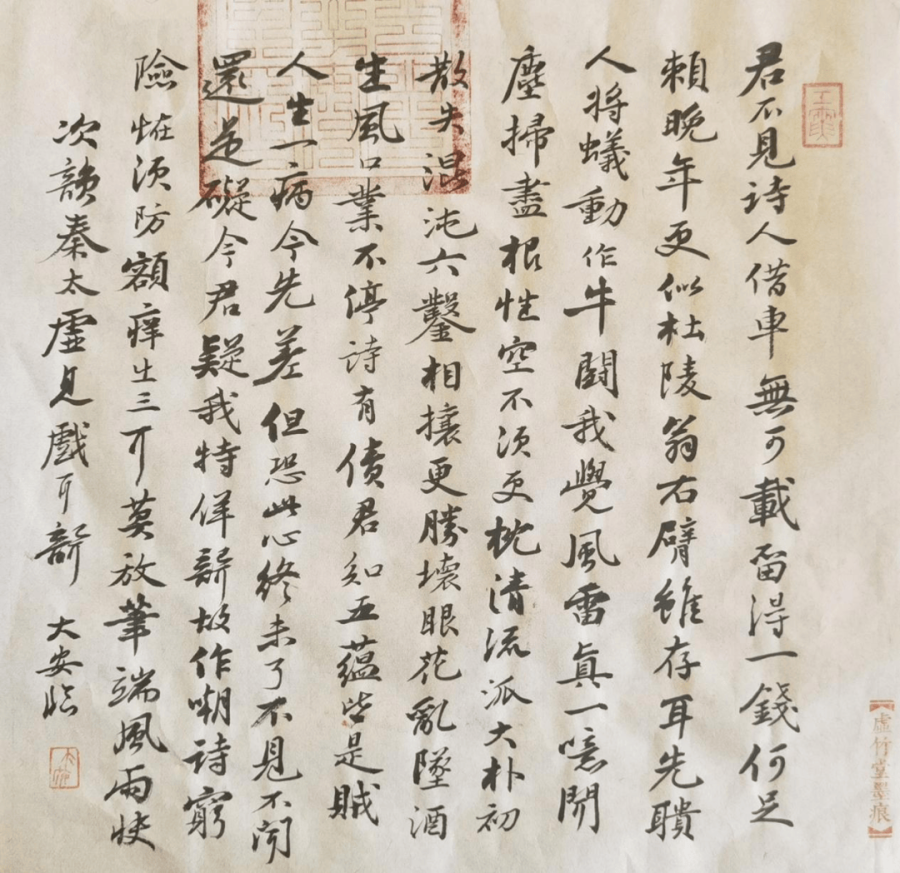 君不見詩人借車無可載畱得一錢何足
賴晚年更似杜陵翁右臂雖存耳先聵
人將蟻動作牛鬭我覺風雷真一噫聞
塵掃盡根性空不須更枕清流派大朴初
散失混沌六鑿相攘更勝壞眼花亂墜酒
生風口業不停詩有債君知五蘊皆是賊
人生一病今先差但恐此心終未了不見不聞
還是礙今君疑我特佯聾故作嘲詩窮
險怪須防額癢出三耳莫放筆端風雨快
次韻秦太虛見戲耳聾 大安臨
虛竹堂墨痕